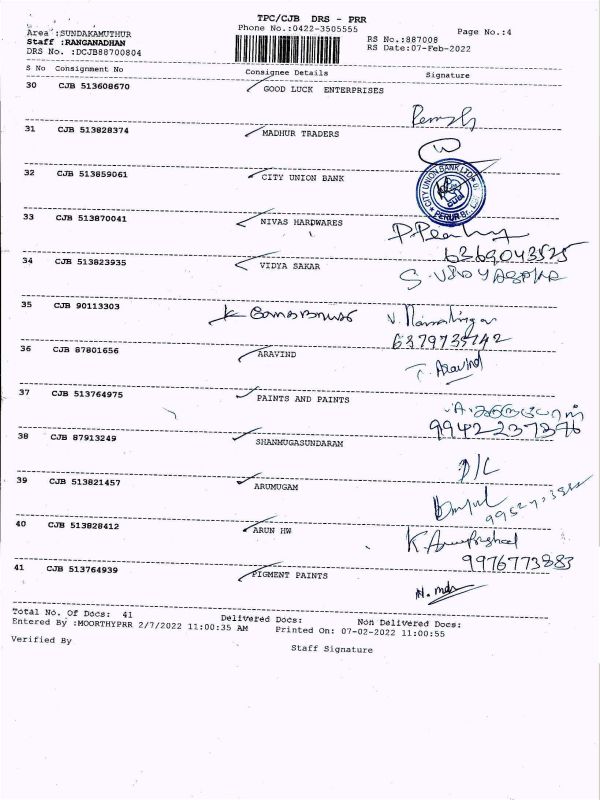 TPC/CJB DRS - PRR
Area :SUNDAKAMUTHUR Phone No.:0422-3505555 Page No.:4
Staff :RANGANADHAN RS No.:887008
DRS No. :DCJB88700804 RS Date:07-Feb-2022
S No Consignment No Consignee Details Signature
30 CJB 513608670 GOOD LUCK ENTERPRISES
31 CJB 513828374 MADHUR TRADERS
32 CJB 513859061 CITY UNION BANK
CITY UNION BANK LTD
PERUR
33 CJB 513870041 NIVAS HARDWARES
6369043525
34 CJB 513823935 VIDYA SAKAR
35 CJB 90113303
6379735742
36 CJB 87801656 ARAVIND
T. Aravind
37 CJB 513764975 PAINTS AND PAINTS
9942237376
38 CJB 87913249 SHANMUGASUNDARAM
D/C
39 CJB 513821457 ARUMUGAM
40 CJB 513828412 ARUN HW
9976773883
41 CJB 513764939 PIGMENT PAINTS
Total No. Of Docs: 41 Delivered Docs: Non Delivered Docs:
Entered By :MOORTHYPRR 2/7/2022 11:00:35 AM Printed On: 07-02-2022 11:00:55
Verified By Staff Signature